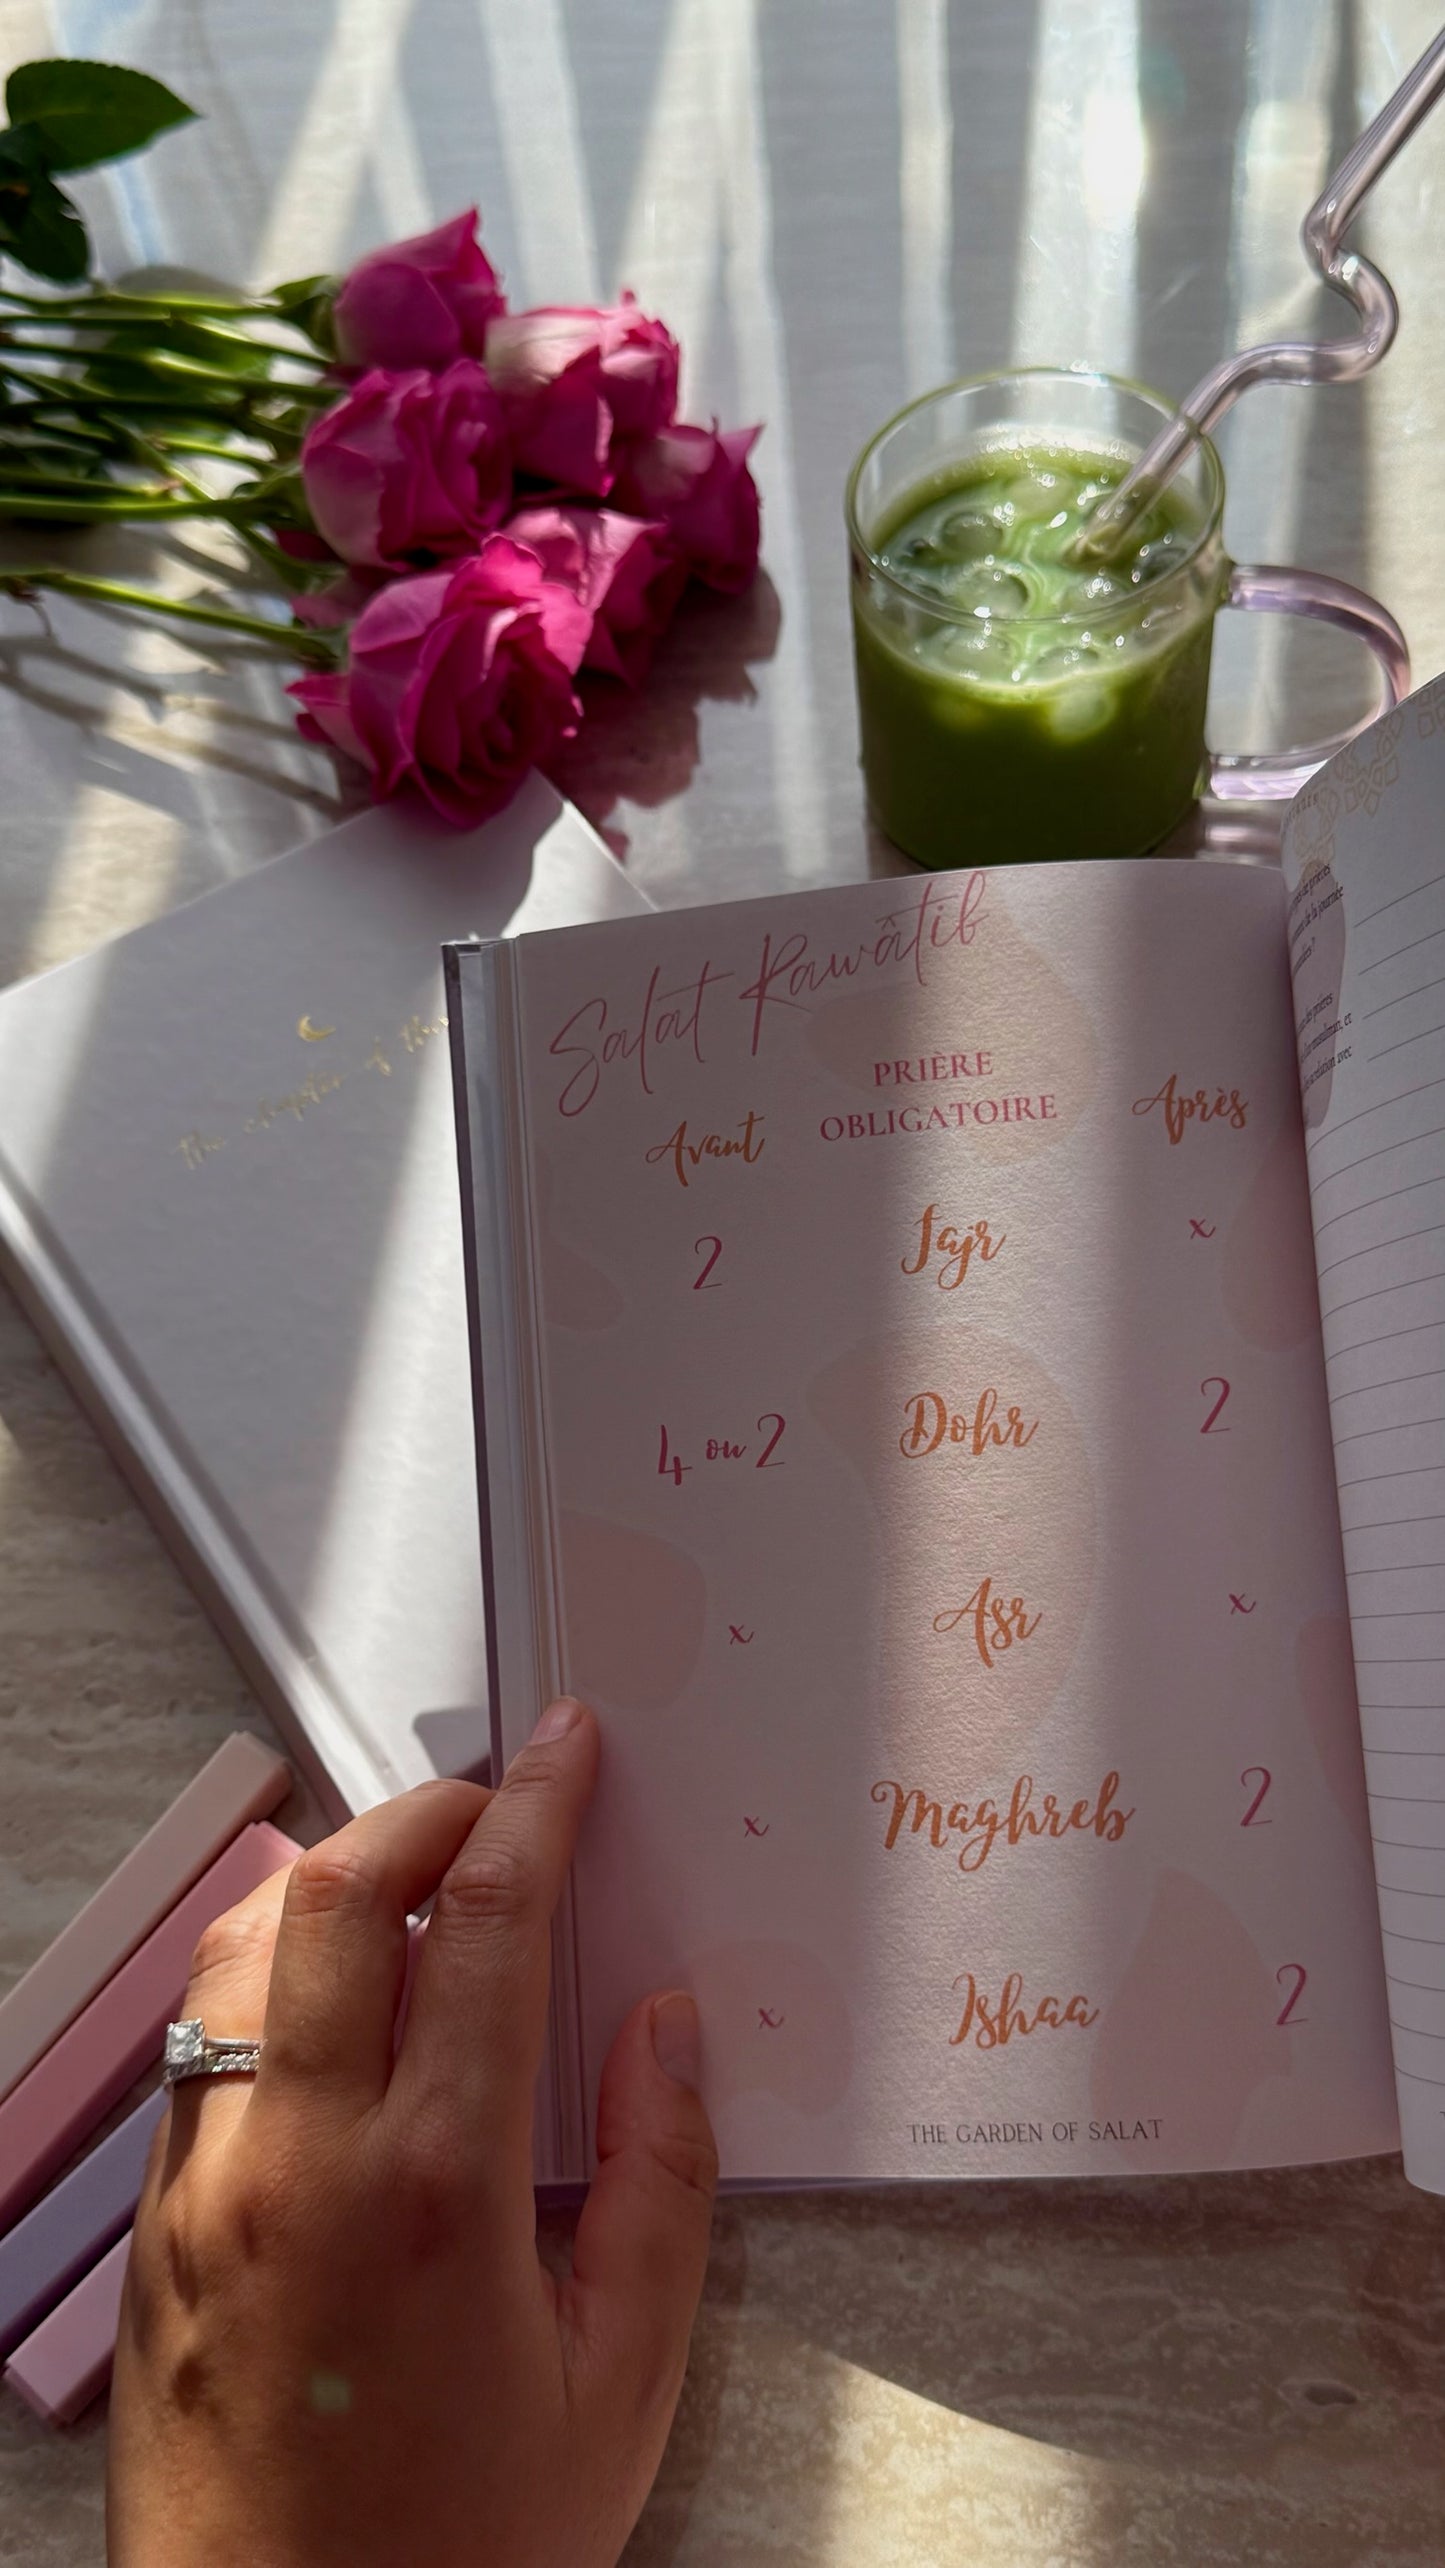 the chapter of the
Salat Rawâtib
Avant
PRIÈRE
OBLIGATOIRE
Après
2 Fajr x
4 ou 2 Dohr 2
x Asr x
x Maghreb 2
x Ishaa 2
THE GARDEN OF SALAT
de prières
de la journée
prières
musulman, et
avec